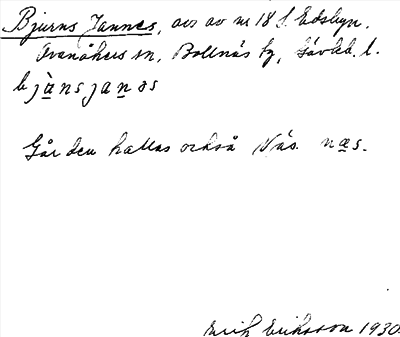 Bjurns Jannes, avs av nr 18 i Edsbyn,
Ovanåkers sn, Bollnäs tg, Gävleb. l.
bjànsjanəs
Går den kallas också Näs. næs.
Erik Eriksson 1930.